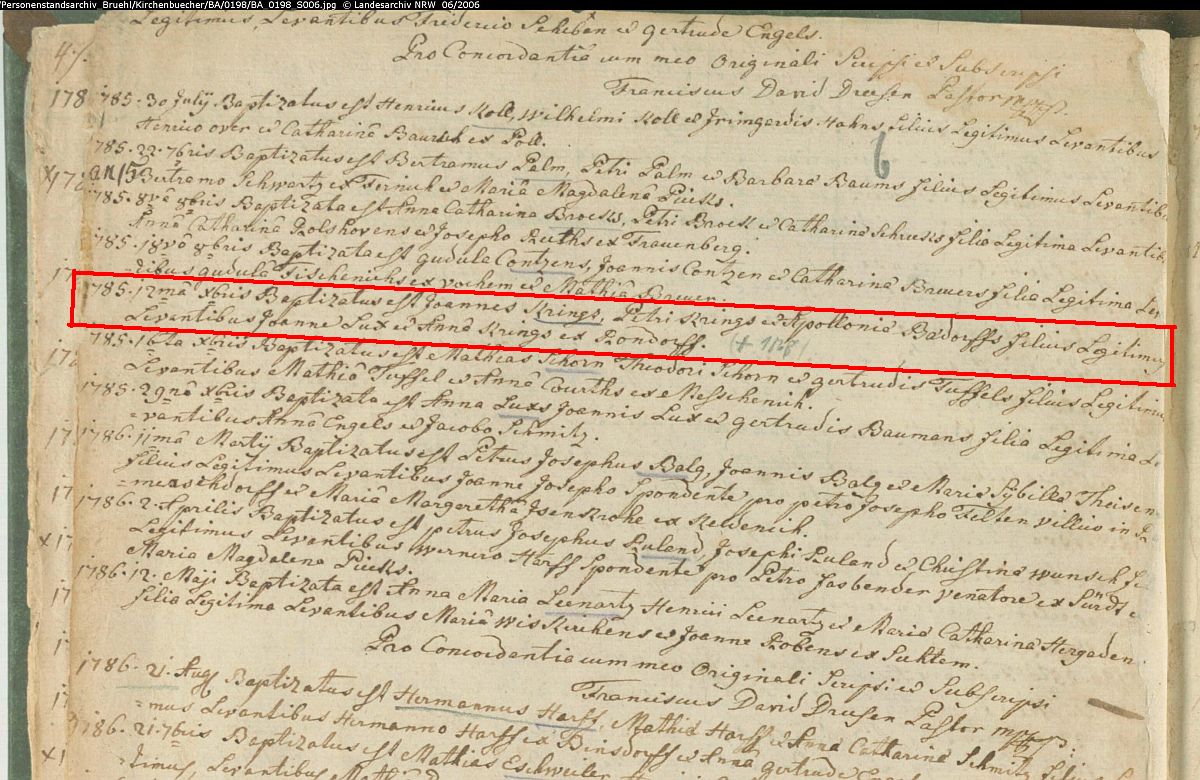 Personenstandsarchiv_Bruehl/Kirchenbuecher/BA/0198/BA_0198_S006.jpg © Landesarchiv NRW 06/2006
Legitimus, Levantibus Frederico Scheben et Gertrude Engels.
Pro Concordantiâ cum meo Originali Scripsi et Subscripsi
Franciscus David Dreesen Pastor mpp.
6
785. 30 Julij Baptizatus est Henricus Koll, Wilhelmi Koll et Irmgardis Hahns filius Legitimus Levantibus
Henrico over et Catharinâ Baurich ex Poll.
785. 22. 7bris Baptizatus est Bertramus Palm, Petri Palm et Barbara Baums filius Legitimus Levantibu
Bertramo Schwartz ex et Mariâ Magdalenâ Pücks.
785. 8vâ 8bris Baptizata est Anna Catharina Brocks, Petri Brock et Catharina filia Legitima Levantib
Annâ Catharinâ Rolshovens et Josepho Ruths ex Frauenberg.
785. 18vâ 8bris Baptizata est Gudula Contzens, Joannis Contzen et Catharina Brewers filia Legitima Le
tibus gudulâ Fischenichs ex vochem et Mathiâ Brewer.
785. 12mâ xbris Baptizatus est Joannes Krings, Petri Krings et Apollonia Badorffs filius Legitimus
Levantibus Joanne Lux et Annâ Krings ex Rondorff.
785. 16ta xbris Baptizatus est Mathias Schorn Theodori Schorn et gertrudis Tuffels filius Legitimus
Levantibus Mathiâ Tuffel et Annâ Courths ex Meschenich.
1785. 29nâ xbris Baptizata est Anna Luxs Joannis Lux et gertrudis Baumans filia Legitima Le
=vantibus Annâ Engels et Jacobo Schmitz.
1786. 11mâ Martij Baptizatus est Petrus Josephus Balg, Joannis Balg et Maria Sybilla Theisen
filius Legitimus Levantibus Joanne Josepho Spondente pro petro Josepho Felten villico in
=merschdorff et Mariâ Margarethâ Isenkrohe ex Kendenich.
1786. 2. Aprilis Baptizatus est petrus Josephus Ruland, Josephi Ruland et Christina wunsch
Legitimus Levantibus wernero Harff Spondente pro Petro Fasbender venatore ex Sürdt
Maria Magdalena Pücks.
1786. 12. Maji Baptizata est Anna Maria Leenartz Henrici Leenartz et Maria Catharina Hergaden
filia Legitima Levantibus Mariâ Wiskirchens et Joanne Robens ex Suktem.
Pro Concordantiâ cum meo Originali Scripsi et Subscripsi
Franciscus David Dreesen Pastor mpp.
1786. 21. Aug Baptizatus est Hermannus Harff, Mathiæ Harff et Anna Catharina Schmitz fili
=mus Levantibus Hermanno Harff ex Binsdorff et Anna gertrude
786. 21. 7bris Baptizatus est Mathias Eschweiler
timus, Levantibus